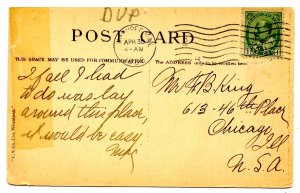 DVP
POST CARD
THIS SPACE MAY BE USED FOR COMMUNICATION
THE ADDRESS ONLY TO BE WRITTEN HERE
APR 5
4-AM
If all I had
to do was lay
around this place,
it would be easy
Mr F B King
613-46th Place
Chicago
Ill
U.S.A.